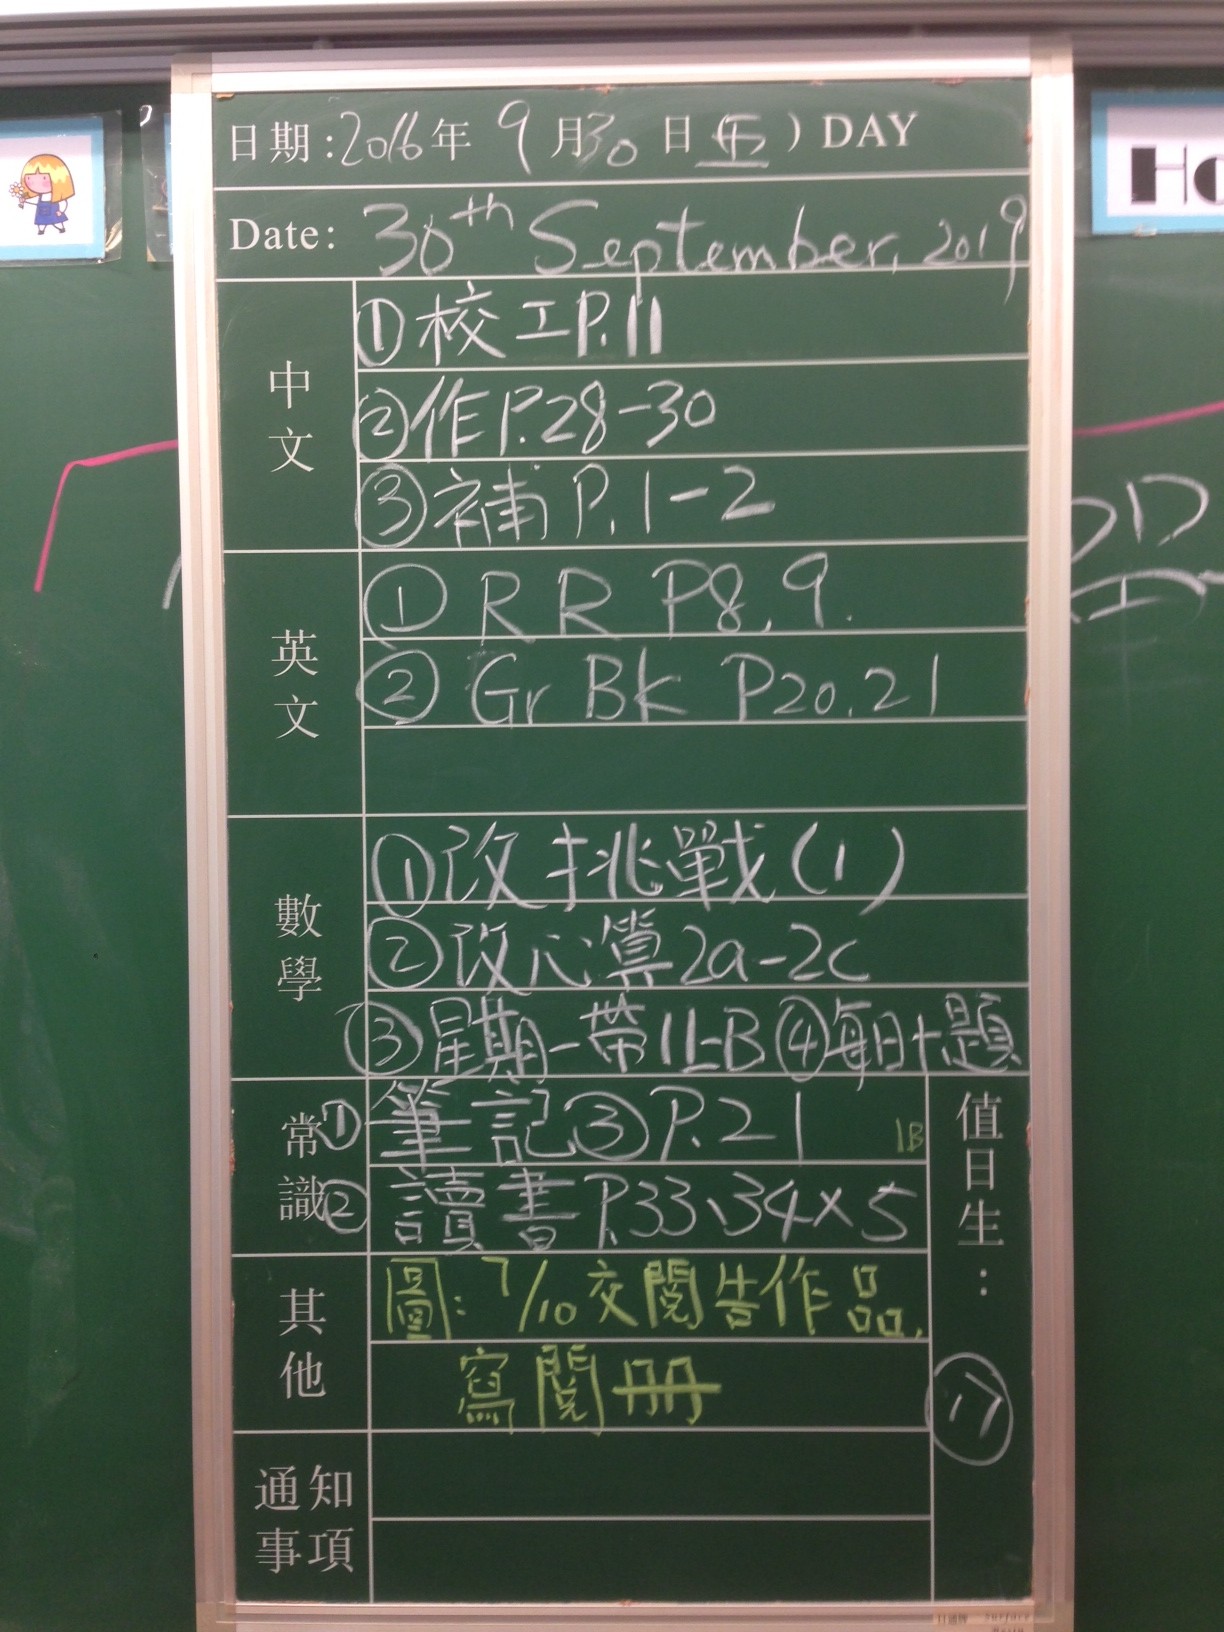 日期:2016年 9月30日(五)DAY
Date: 30th September, 2019
中文
①校工P.11
②作P.28-30
③補P.1-2
英文
① RR P8, 9.
② Gr Bk P20, 21
數學
①改挑戰(1)
②改心算2a-2c
③星期一帶1上B ④每日十題
常識
①筆記③P.21
1B
②讀書P.33、34×5
其他
圖: 7/10交閱告作品,
寫閱冊
通知事項
值日生:
17
Ho